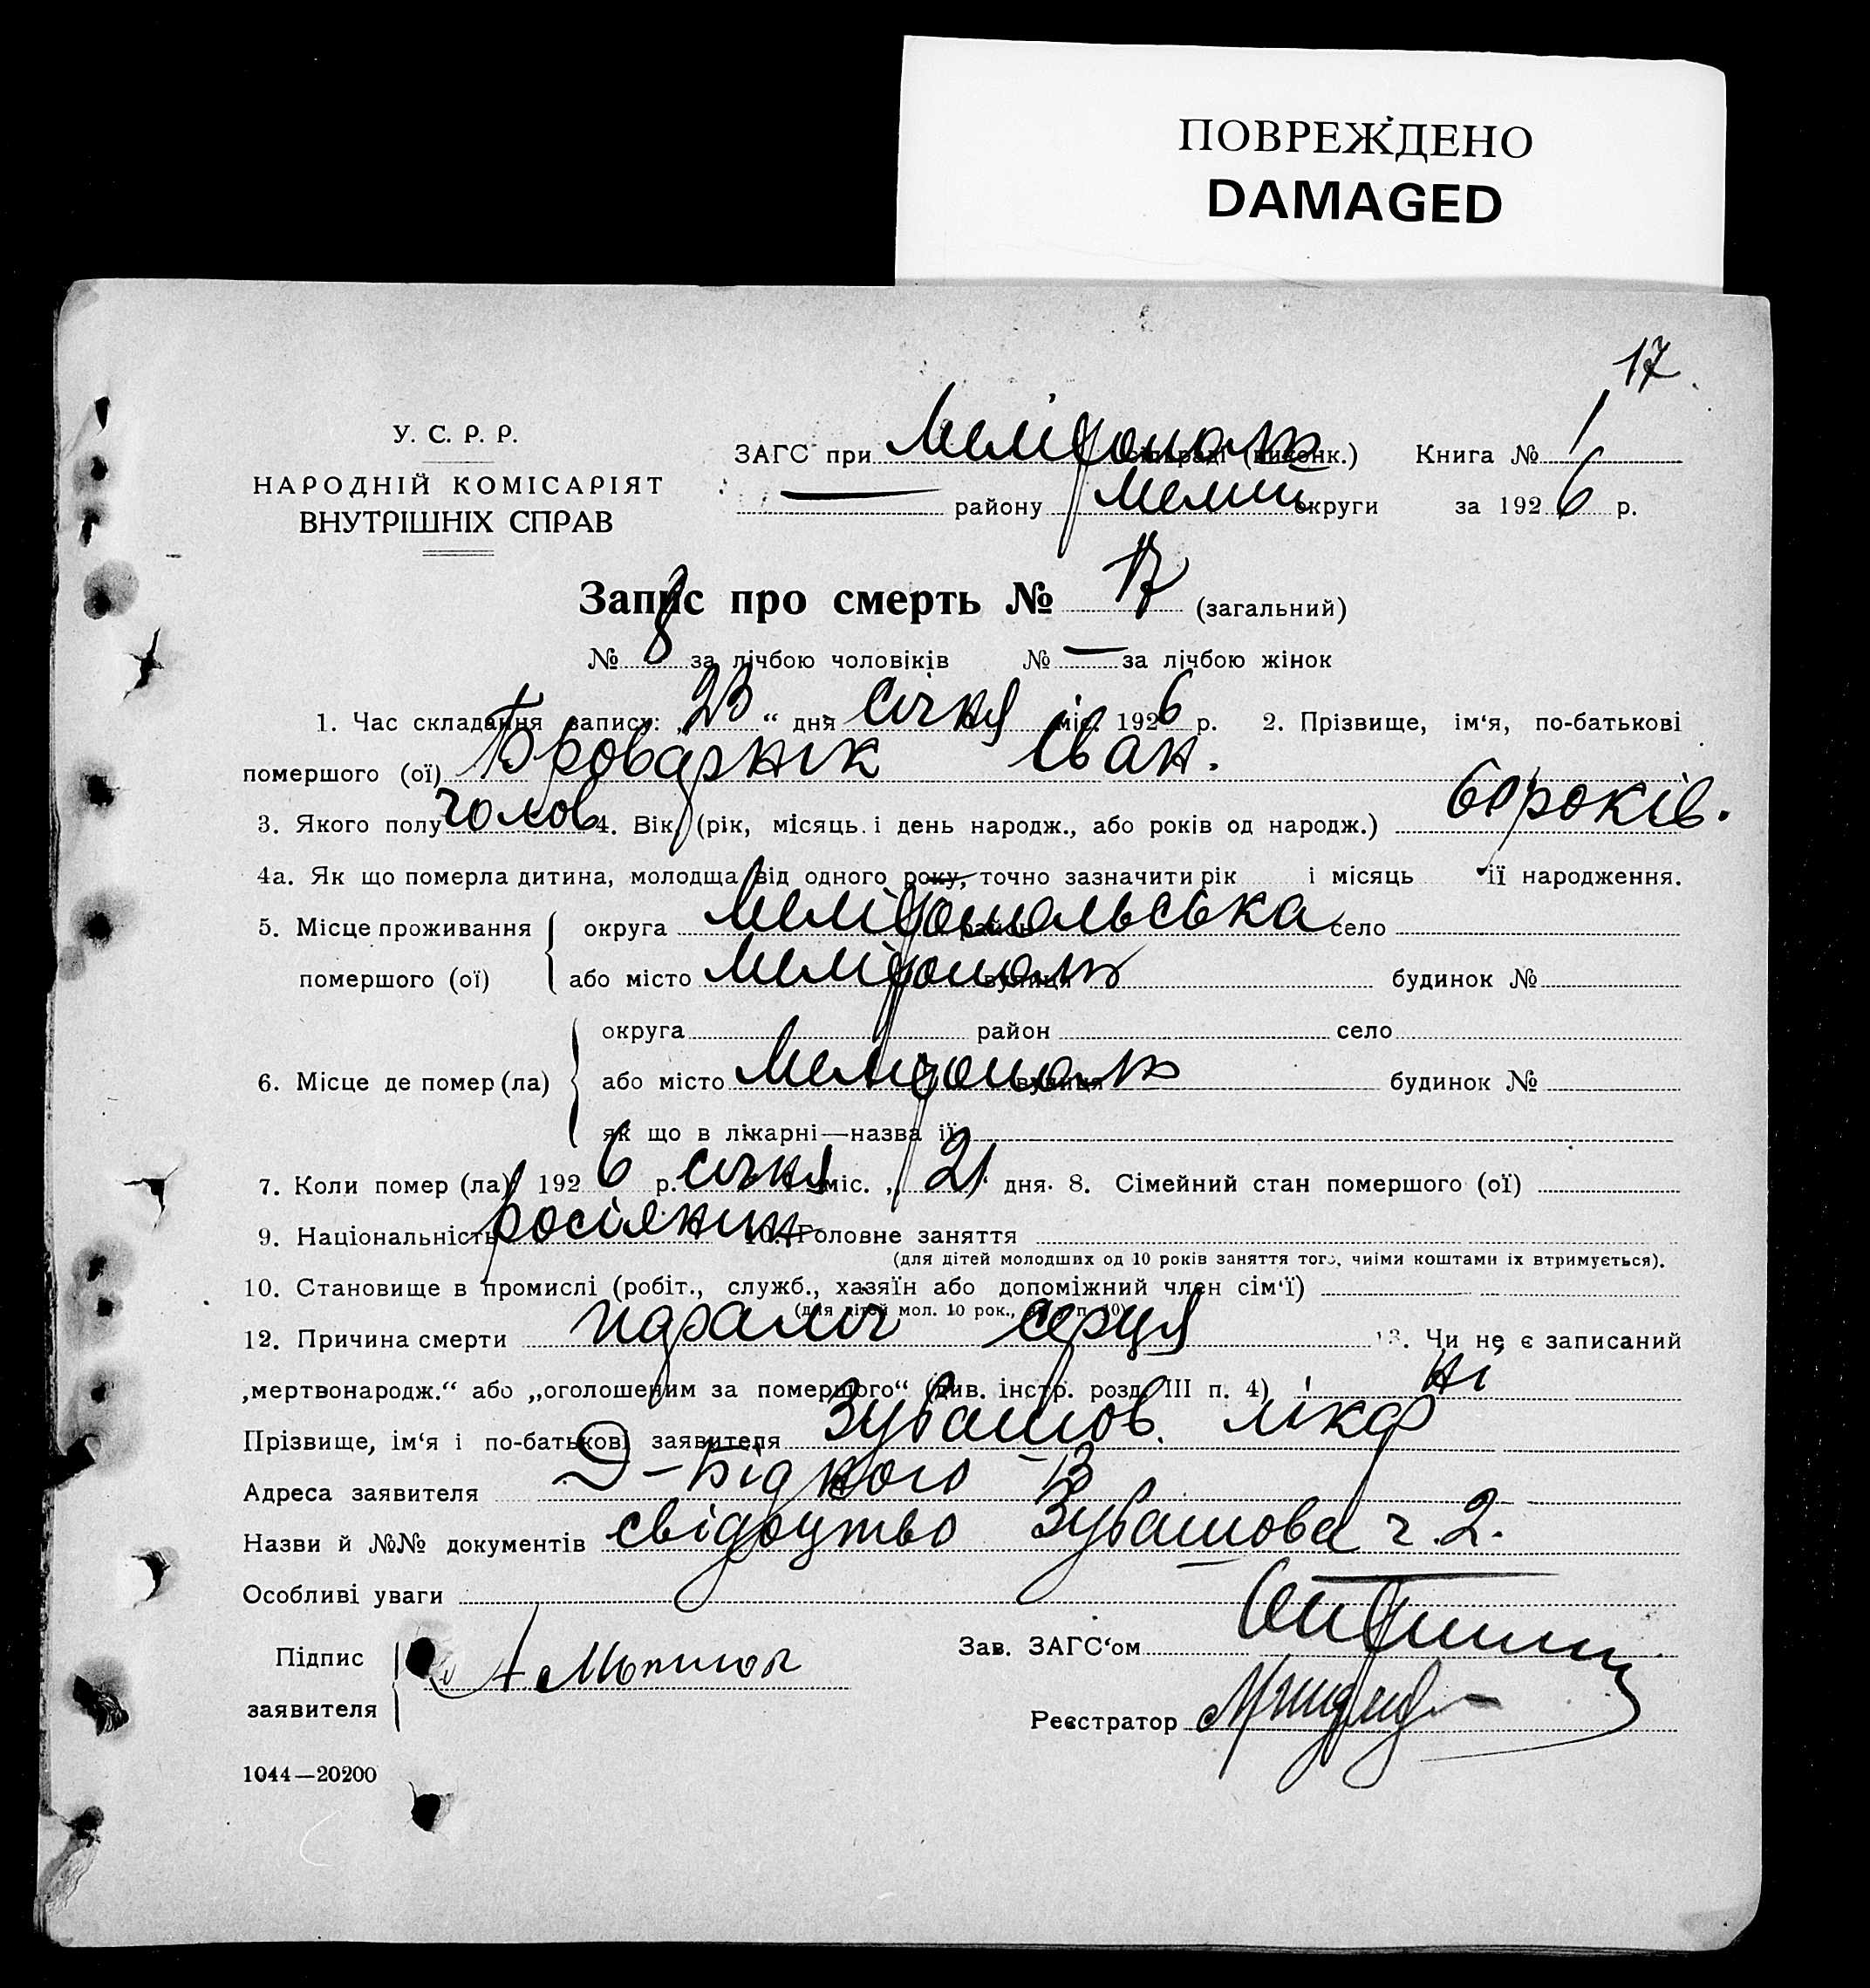 ПОВРЕЖДЕНО
DAMAGED
17.
У. С. Р. Р.
НАРОДНІЙ КОМІСАРІЯТ
ВНУТРІШНІХ СПРАВ
ЗАГС при Мелітополь сільраді (виконк.) Книга № 1
— району Мелит округи за 1926 р.
Запис про смерть № 17 (загальний)
№ 8 за лічбою чоловіків № — за лічбою жінок
1. Час складання запису: „23“ дня січня міс. 1926 р. 2. Прізвище, ім‘я, по-батькові
помершого (ої) Броварнік Іван.
3. Якого полу чолов 4. Вік, (рік, місяць і день народж., або років од народж.) 60 років.
4а. Як що померла дитина, молодша від одного року, точно зазначити рік і місяць її народження.
5. Місце проживання округа Мелітопольська район село
помершого (ої) або місто Мелітополь вулиця будинок №
округа район село
6. Місце де помер (ла) або місто Мелітополь вулиця будинок №
як що в лікарні—назва її
7. Коли помер (ла) 1926 р. січня міс. „21. дня. 8. Сімейний стан помершого (ої)
9. Національність росіянин 10. Головне заняття
(для дітей молодших од 10 років заняття того, чиїми коштами їх втримується).
10. Становище в промислі (робіт., служб., хазяїн або допоміжний член сім‘ї)
(для дітей мол. 10 рок., п. 10)
12. Причина смерти параліч серця 13. Чи не є записаний
„мертвонародж.“ або „оголошеним за помершого“ (див. інстр. розд. III п. 4) ні
Прізвище, ім‘я і по-батькові заявителя Зубашов. лікар
Адреса заявителя
Назви й №№ документів свідоцтво Зубашова ч. 2.
Особливі уваги
Підпис
заявителя
Зав. ЗАГС‘ом
Реєстратор
1044—20200